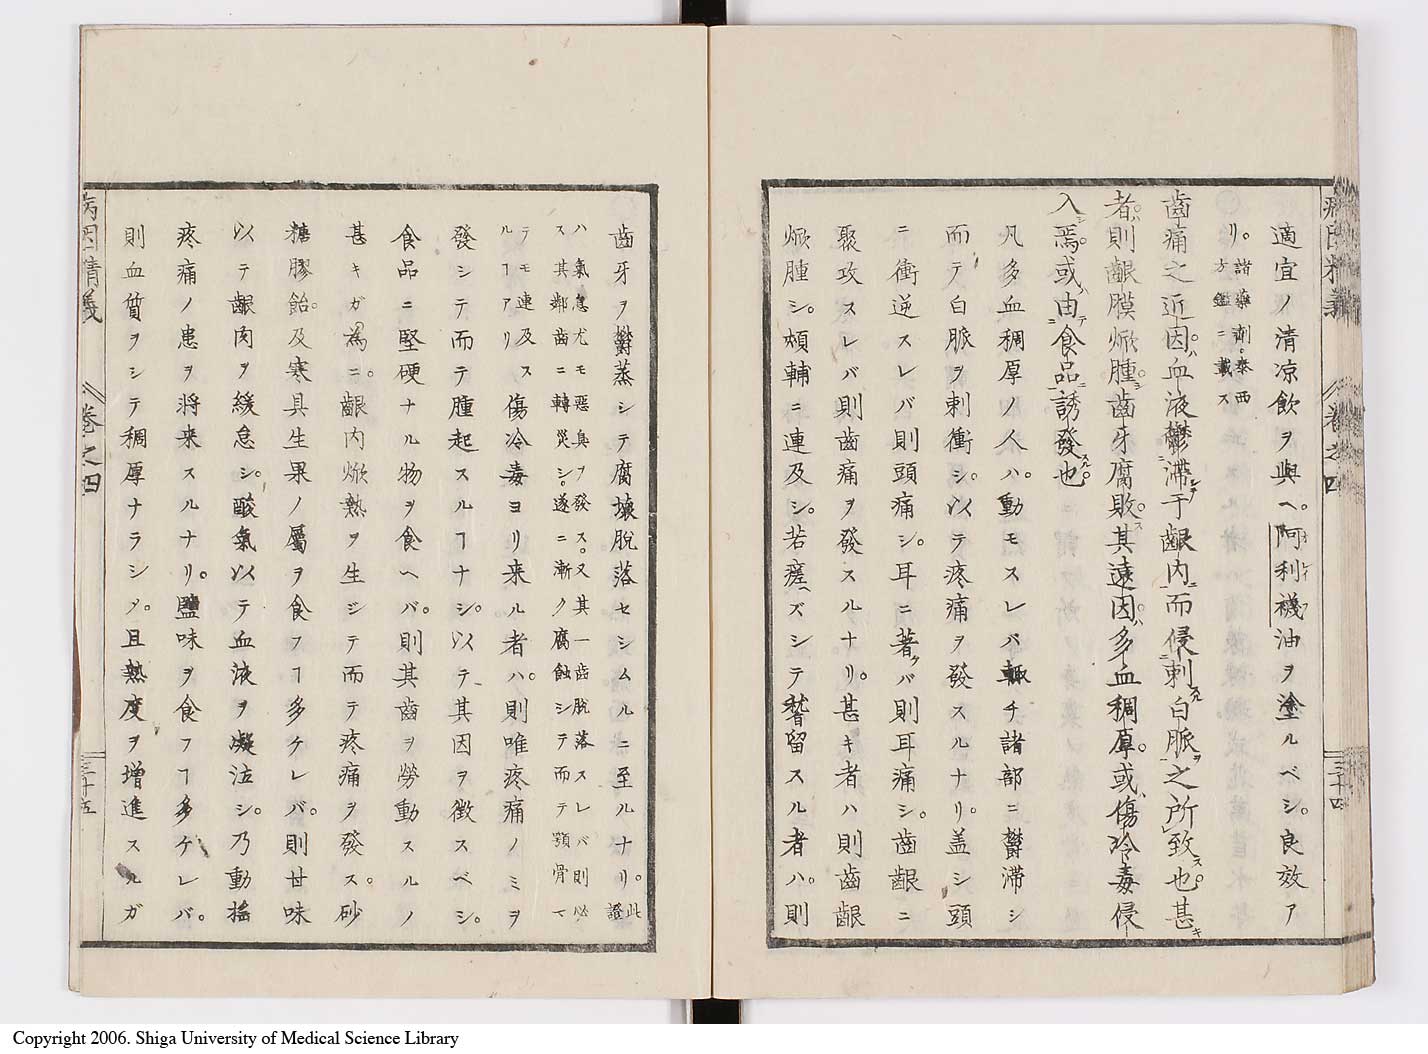 適宜ノ清凉飲ヲ與ヘ。阿利襪油ヲ塗ルベシ。良效ア
リ。諸藥劑。泰西
方鑑ニ載ス
齒痛之近因ハ血液鬱滯于齦内而侵刺白脈之所致也甚
者。則齦膜焮腫。齒牙腐敗。其遠因。多血稠厚。或傷冷毒侵
入焉。或由食品誘發也
凡多血稠厚ノ人ハ。動モスレバ輙チ諸部ニ欝滯シ
而テ白脈ヲ刺衝シ。以テ疼痛ヲ發スルナリ。盖シ頭
ニ衝逆スレバ則頭痛シ。耳ニ著クバ則耳痛シ。齒齦ニ
聚攻スレバ則齒痛ヲ發スルナリ。甚キ者ハ則齒齦
焮腫シ。頰輔ニ連及シ。若瘥ヘズシテ稽留スル者ハ。則
病因精義
卷之四
三十四
齒牙ヲ欝蒸シテ腐壞脫落セシムルニ至ルナリ。此
證
ハ氣息尤モ惡臭ヲ發ス。又其一齒脫落スレバ則必
ス其鄰齒ニ轉災シ。遂ニ漸ク腐蝕シテ而テ顎骨マ
テモ連及ス
ルヿアリ
傷冷毒ヨリ来ル者ハ。則唯疼痛ノミヲ
發シテ而テ腫起スルヿナシ。以テ其因ヲ徴スベシ。
食品ニ堅硬ナル物ヲ食ヘバ。則其齒ヲ勞動スルノ
甚キガ爲ニ。齦内焮熱ヲ生ジテ而テ疼痛ヲ發ス。砂
糖膠飴。及寒具生果ノ屬ヲ食フヿ多ケレバ。則甘味
以テ齦肉ヲ緩怠シ。酸氣以テ血液ヲ凝泣シ。乃動搖
疼痛ノ患ヲ将来スルナリ。鹽味ヲ食フヿ多ケレバ。
則血質ヲシテ稠厚ナラシメ。且熱度ヲ增進スルガ
病因精義
卷之四
三十五
Copyright 2006. Shiga University of Medical Science Library